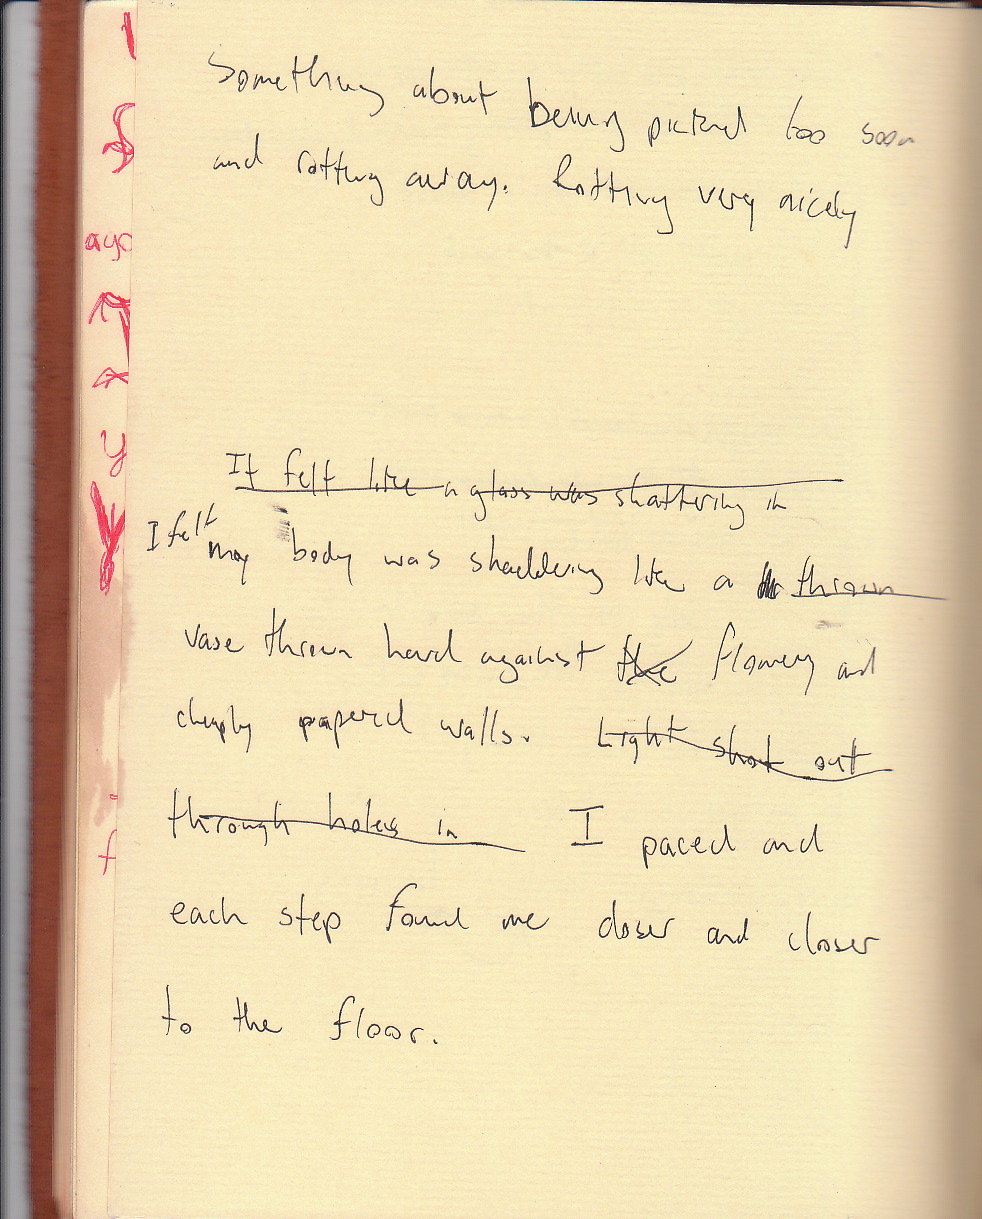 Something about being picked too soon
and rotting away. Rotting very nicely
It felt like a glass was shattering in
I felt my body was shuddering like a thrown
vase thrown hard against the flowery and
cheaply papered walls. Light shot out
through holes in I paced and
each step found me closer and closer
to the floor.
ago
y
f